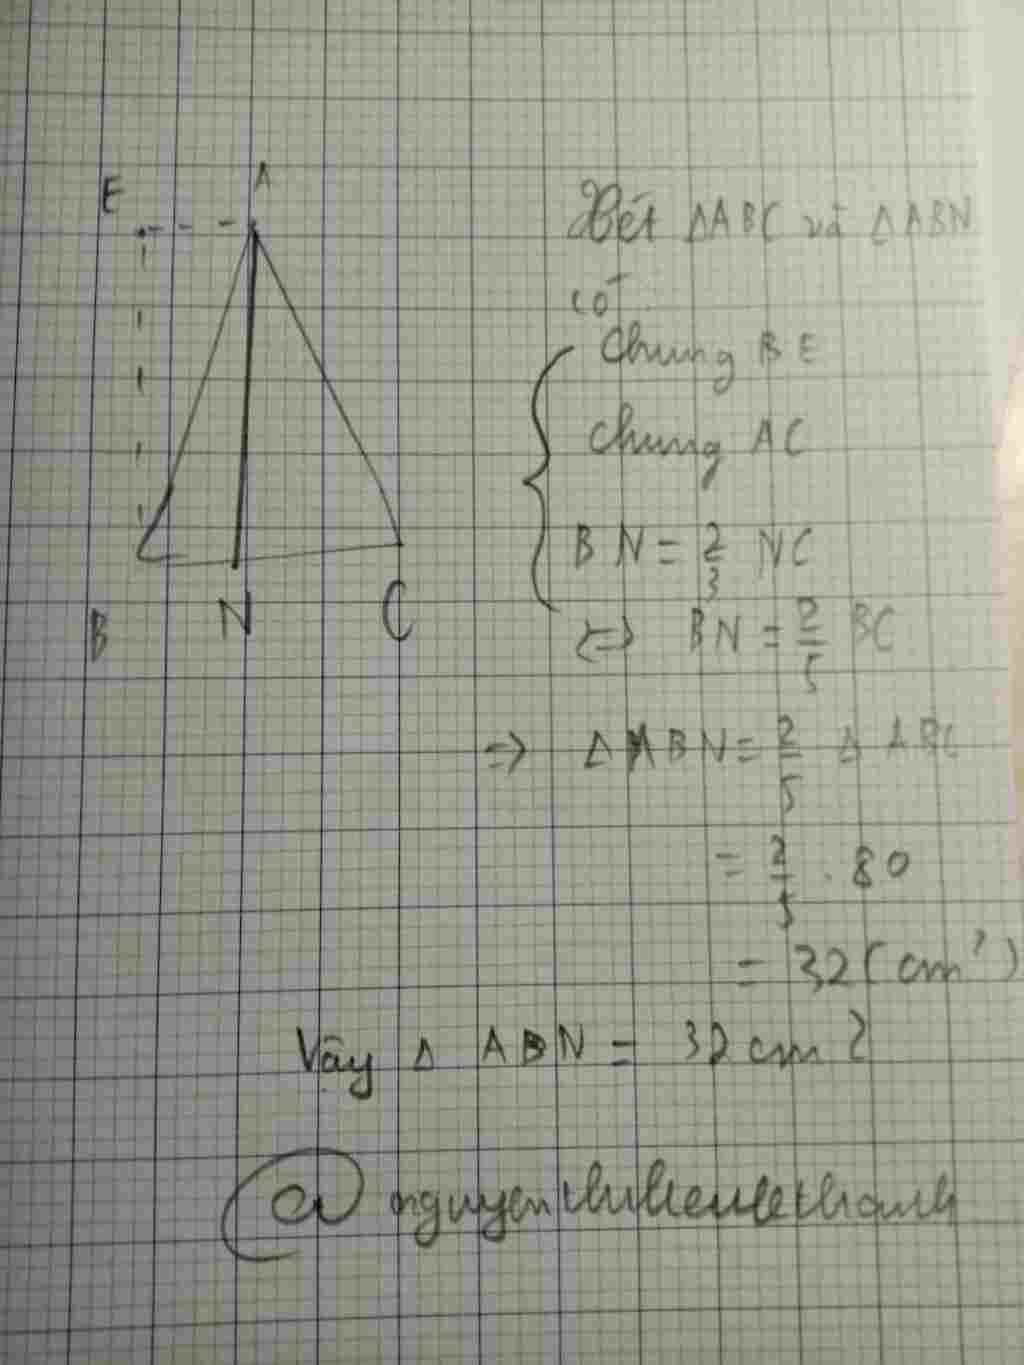 E
A
B
N
C
Xét ΔABC và ΔABN
có
Chung BE
Chung AC
BN = 2/3 NC
<=> BN = 2/5 BC
=> Δ ABN = 2/5 Δ ABC
= 2/5 . 80
= 32 (cm²)
Vậy Δ ABN = 32 cm2
@